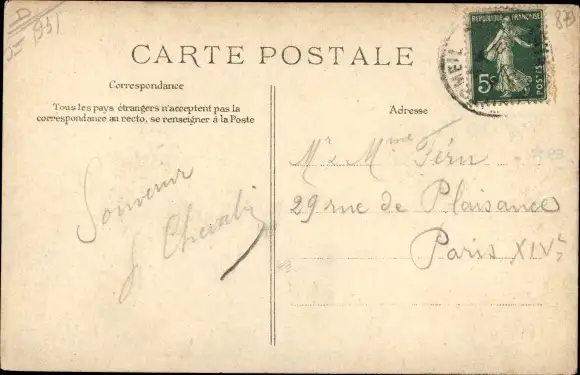 D 1931
873
REPUBLIQUE FRANÇAISE
5c
POSTES
MEIL
CARTE POSTALE
Correspondance
Tous les pays étrangers n'acceptent pas la
correspondance au recto, se renseigner à la Poste
Souvenir
J. Chevalier
Adresse
Mr & Mme Féru
29 rue de Plaisance
Paris XIVe